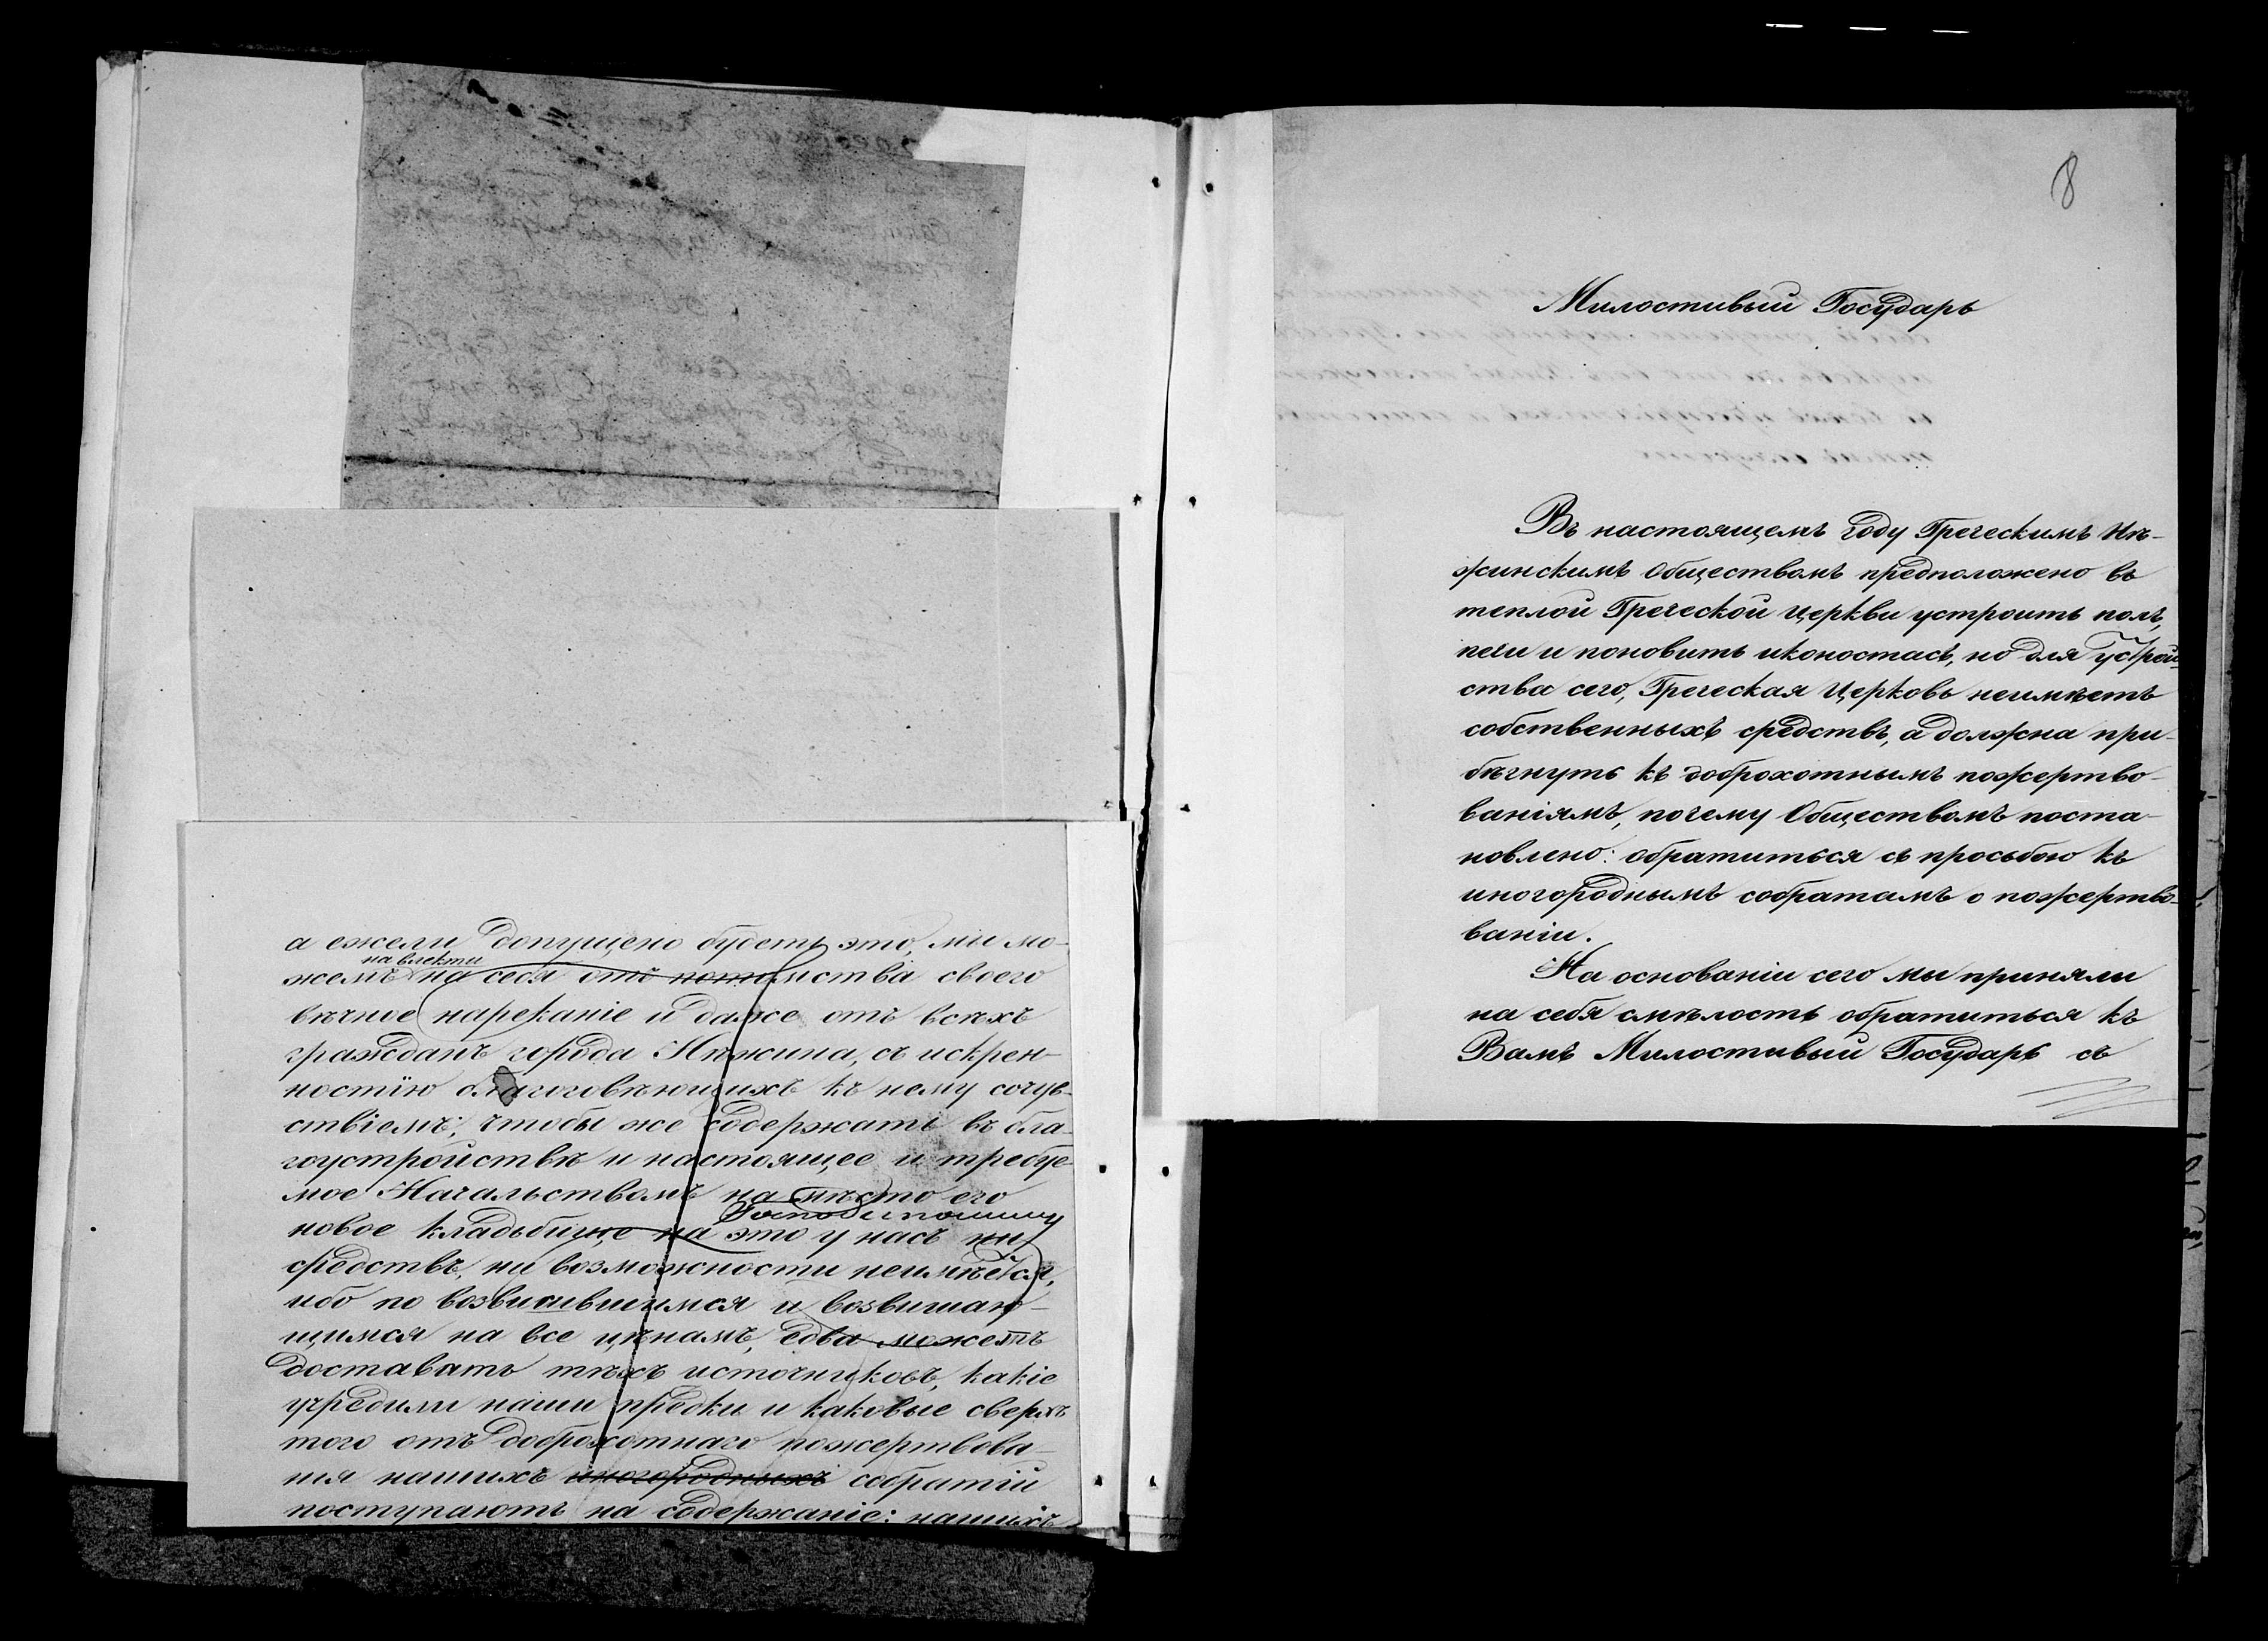 а ежели допущено будетъ это, мы мо-
навлекти
жемъ на себя отъ потомства своего
вѣчное нареканіе и даже отъ всѣхъ
гражданъ города Нѣжина, съ искрен-
ностію благоговѣющихъ къ нему сочув-
ствіемъ; чтобы же содержать въ бла-
гоустройствѣ и настоящее и требуе-
мое Начальствомъ на мѣсто его
новое кладьбище на это у насъ ни
средствъ, ни возможности неимѣется,
ибо по возвисившимся и возвишаю-
щимся на все цѣнамъ, едва можемъ
доставать тѣхъ источниковъ, какіе
учредили наши предки и каковые сверхъ
того отъ доброхотнаго пожертвова-
нія нашихъ иногородныхъ собратій
поступаютъ на содержаніе: нашихъ
8
Милостивый Государь
Въ настоящемъ году Греческимъ Нѣ-
жинскимъ Обществомъ предположено въ
теплой Греческой церкви устроить полъ,
печи и поновить иконостасъ, но для устрой-
ства сего, Греческая Церковь неимѣетъ
собственныхъ средствъ, а должна при-
бѣгнуть къ доброхотнымъ пожертво-
ваніямъ, почему Обществомъ поста-
новлено: обратиться съ просьбою къ
иногороднымъ собратамъ о пожертво-
ваніи.
На основаніи сего мы приняли
на себя смѣлость обратиться къ
Вамъ Милостивый Государь съ